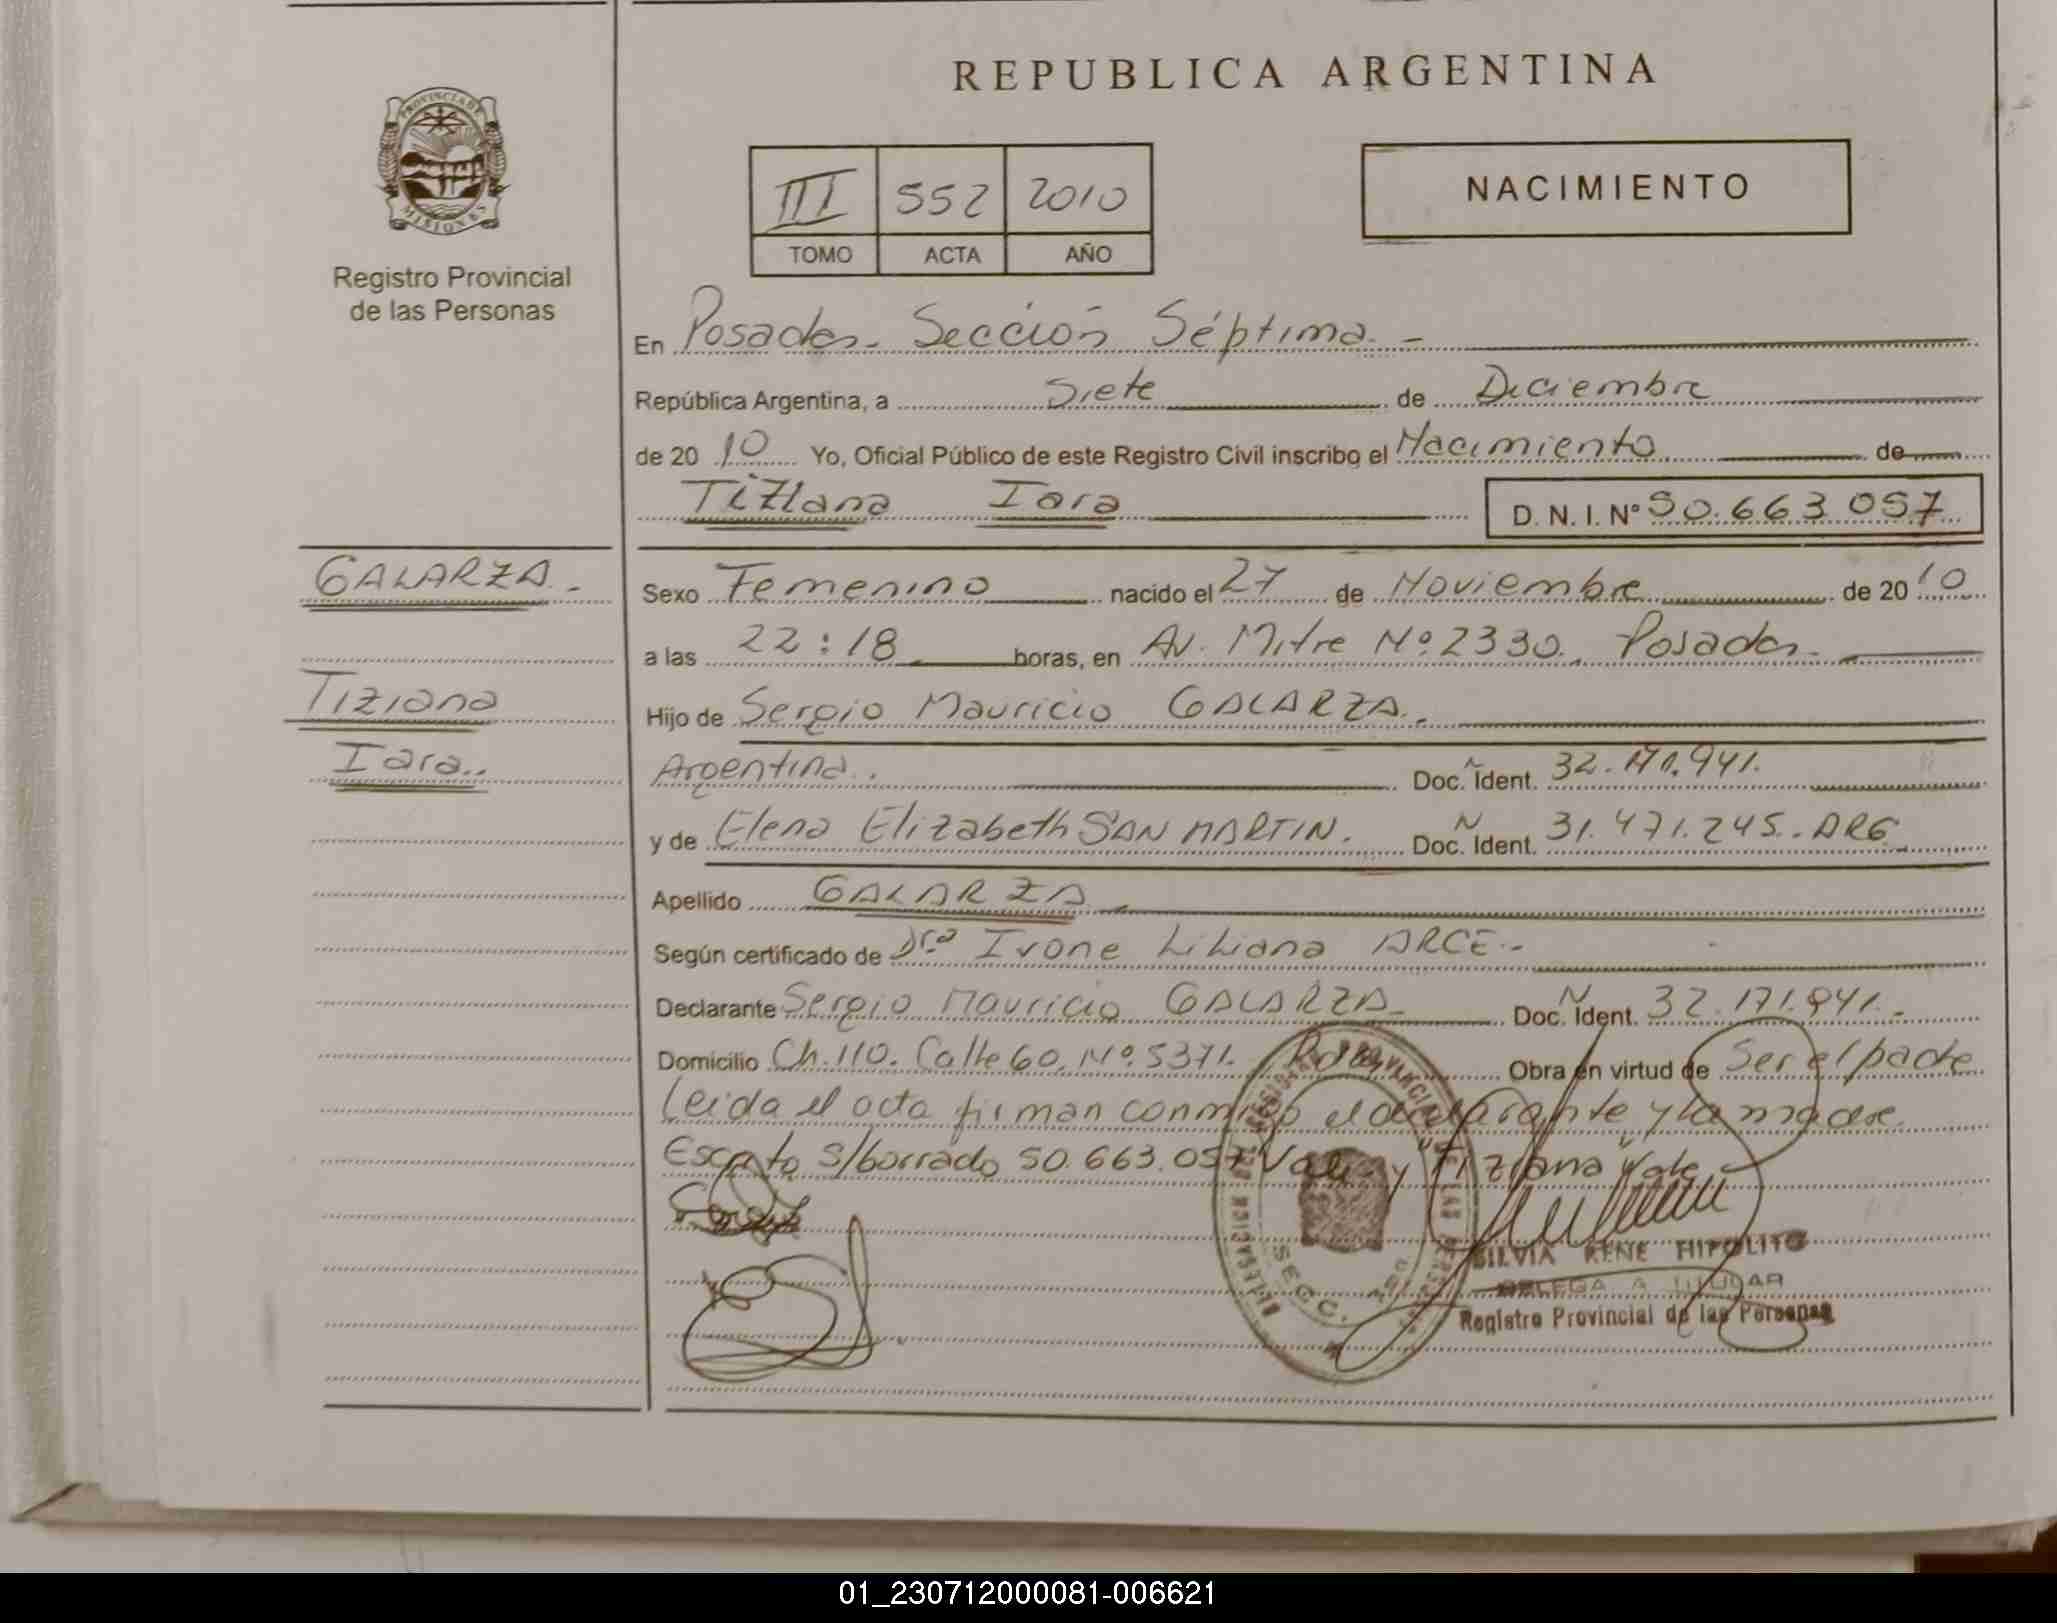 REPUBLICA ARGENTINA
PROVINCIA DE
MISIONES
Registro Provincial
de las Personas
III 552 2010
TOMO ACTA AÑO
NACIMIENTO
En Posadas - Sección Séptima. -
República Argentina, a Siete de Diciembre
de 20 10 Yo, Oficial Público de este Registro Civil inscribo el Nacimiento de
Tiziana Iara D. N. I. Nº 50.663.057
GALARZA.-
Sexo Femenino nacido el 27 de Noviembre de 20 10
a las 22:18 horas, en Av. Mitre Nº 2330. Posadas.
Tiziana
Hijo de Sergio Mauricio GALARZA.
Iara..
Argentina.. Doc. Ident. N 32.171.941.
y de Elena Elizabeth SAN MARTIN. Doc. Ident. N 31.471.245. ARG
Apellido GALARZA -
Según certificado de Dra Ivone Liliana ARCE.-
Declarante Sergio Mauricio GALARZA - Doc. Ident. N 32.171.941.-
Domicilio Ch. 110. Calle 60. Nº 5371. Pdas Obra en virtud de Ser el padre
Leida el acta firman conmigo el declarante y la madre.
Escrito s/borrado 50.663.057 Vale y "Tiziana" Vale
SILVIA RENE HIPOLITO
DELEGADA TITULAR
Registro Provincial de las Personas
01_230712000081-006621